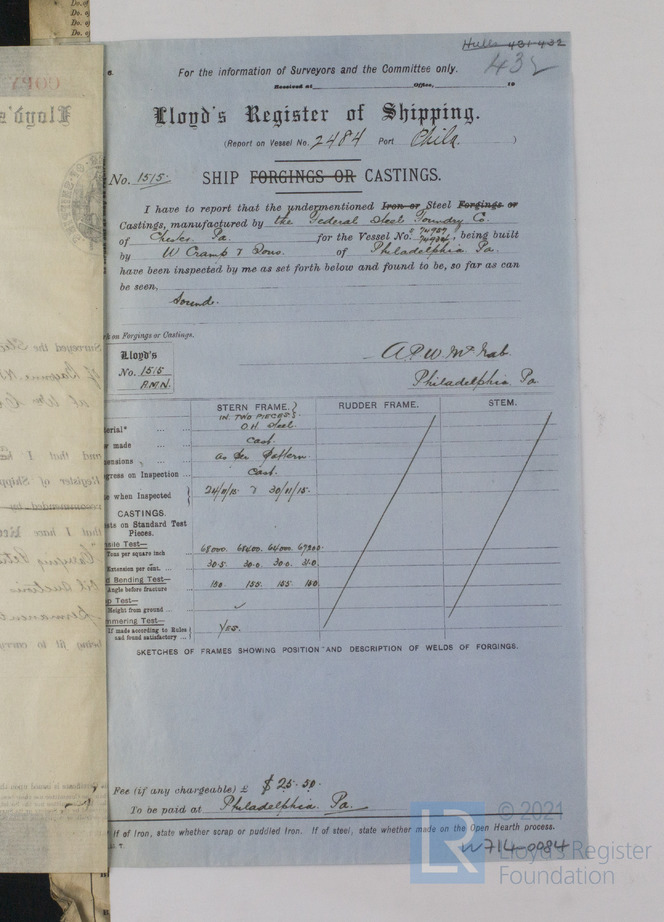 Do. of
Do. of
COPY
Lloyd's
Hulls 431-432
432
For the information of Surveyors and the Committee only.
Received at Office, 19
Lloyd's Register of Shipping.
(Report on Vessel No. 2484 Port Phila. )
No. 1515. SHIP FORGINGS OR CASTINGS.
I have to report that the undermentioned Iron or Steel Forgings or
Castings, manufactured by the Federal Steel Foundry Co.
of Chester. Pa. for the Vessel No. being built
by W Cramp & Sons. of Philadelphia. Pa.
have been inspected by me as set forth below and found to be, so far as can
be seen,
Sound.
k on Forgings or Castings.
Lloyd's
No. 1515
A.M.N.
A.P.W. McNab.
Philadelphia. Pa.
STERN FRAME. RUDDER FRAME. STEM.
IN TWO PIECES
erial* O.H. Steel.
made Cast.
ensions as per Pattern
gress on Inspection Cast.
e when Inspected 24/11/15 & 30/11/15.
CASTINGS.
ts on Standard Test
Pieces.
sile Test—
Tons per square inch 68000. 68400. 64000. 67200.
Extension per cent. 30.5 30.0 30.0 31.0
d Bending Test—
Angle before fracture 180. 155. 155. 160.
p Test—
Height from ground ✓
mmering Test—
If made according to Rules and found satisfactory Yes.
SKETCHES OF FRAMES SHOWING POSITION AND DESCRIPTION OF WELDS OF FORGINGS.
Fee (if any chargeable) £ $25.50.
To be paid at Philadelphia. Pa.
If of Iron, state whether scrap or puddled Iron. If of steel, state whether made on the Open Hearth process.
W714-0084
LR
© 2021
Lloyd's Register
Foundation